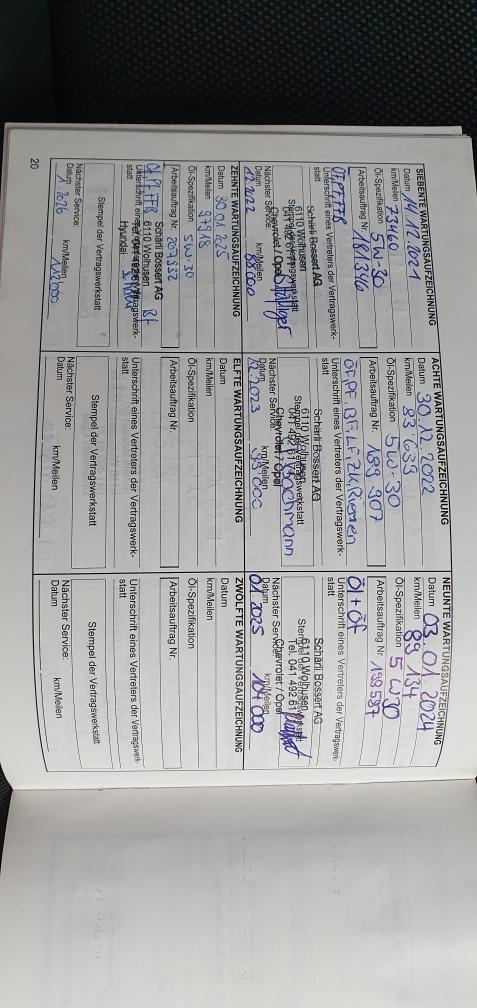 SIEBENTE WARTUNGSAUFZEICHNUNG
Datum 14.12.2021
km/Meilen 73460
Öl-Spezifikation 5W-30
Arbeitsauftrag Nr. 181346
Unterschrift eines Vertreters der Vertragswerkstatt
Schärli Bossert AG
6110 Wolhusen
Stempel der Vertragswerkstatt
Chevrolet / Opel
Nächster Service:
Datum 12.2022 km/Meilen 88000
ACHTE WARTUNGSAUFZEICHNUNG
Datum 30.12.2022
km/Meilen 83639
Öl-Spezifikation 5W-30
Arbeitsauftrag Nr. 189 907
Unterschrift eines Vertreters der Vertragswerkstatt
Schärli Bossert AG
6110 Wolhusen
Stempel der Vertragswerkstatt
041 492 61
Chevrolet / Opel
Nächster Service:
Datum 12.2023 km/Meilen
NEUNTE WARTUNGSAUFZEICHNUNG
Datum 03.01.2024
km/Meilen 89134
Öl-Spezifikation 5W30
Arbeitsauftrag Nr. 199597
Unterschrift eines Vertreters der Vertragswerkstatt
Öl + Öf
Schärli Bossert AG
6110 Wolhusen
Stempel der Vertragswerkstatt
Tel. 041 492 61
Chevrolet / Opel
Nächster Service:
Datum 01.2025 km/Meilen 104000
ZEHNTE WARTUNGSAUFZEICHNUNG
Datum 30.01.2025
km/Meilen 97918
Öl-Spezifikation 5W-30
Arbeitsauftrag Nr. 207932
Unterschrift eines Vertreters der Vertragswerkstatt
Schärli Bossert AG
6110 Wolhusen
Hyundai
Stempel der Vertragswerkstatt
Nächster Service:
Datum 1.2026 km/Meilen 112000
ELFTE WARTUNGSAUFZEICHNUNG
Datum
km/Meilen
Öl-Spezifikation
Arbeitsauftrag Nr.
Unterschrift eines Vertreters der Vertragswerk-
statt
Stempel der Vertragswerkstatt
Nächster Service:
Datum km/Meilen
ZWÖLFTE WARTUNGSAUFZEICHNUNG
Datum
km/Meilen
Öl-Spezifikation
Arbeitsauftrag Nr.
Unterschrift eines Vertreters der Vertragswerk-
statt
Stempel der Vertragswerkstatt
Nächster Service:
Datum km/Meilen
20